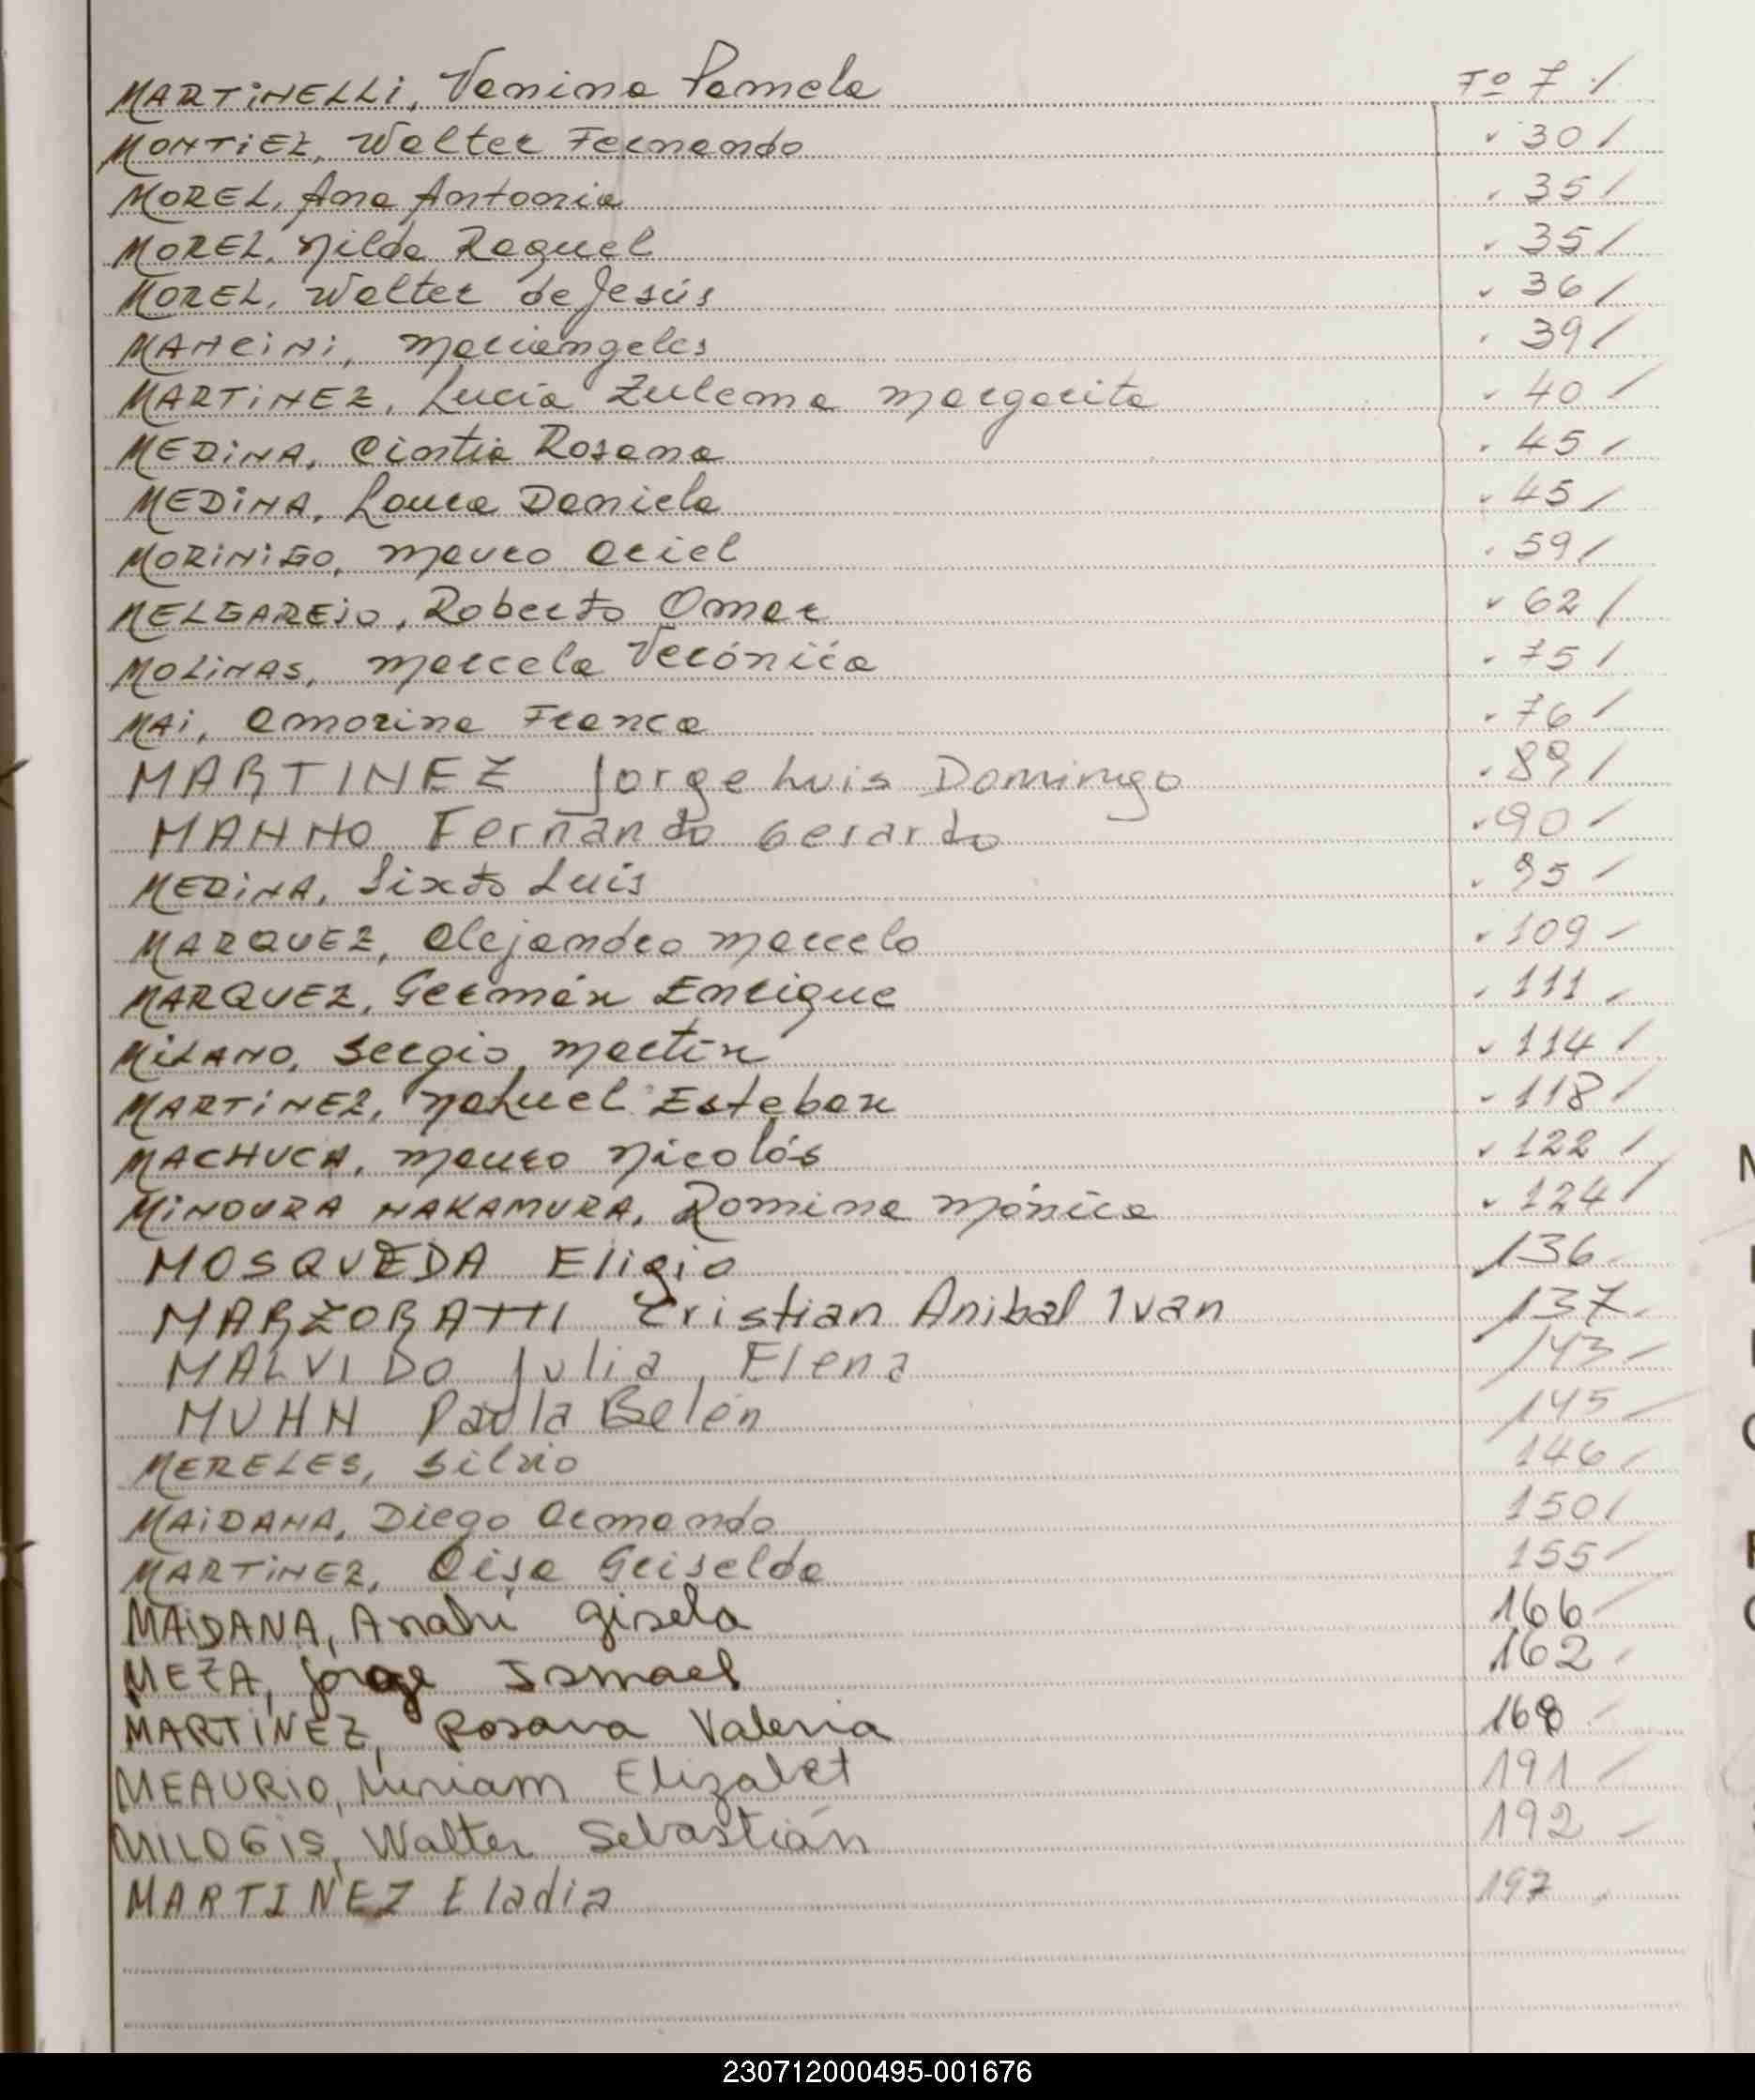 MARTINELLI, Vanina Pamela Fº 7 /
MONTIEL, Walter Fernando " 30 /
MOREL, Ana Antonia " 35 /
MOREL, Nilda Raquel " 35 /
MOREL, Walter de Jesús " 36 /
MANCINI, Mariangeles " 39 /
MARTINEZ, Lucía Zulema Margarita " 40 /
MEDINA, Cintia Rosana " 45 /
MEDINA, Laura Daniela " 45 /
MORINIGO, Mauro Ariel " 59 /
MELGAREJO, Roberto Omar " 62 /
MOLINAS, Marcela Verónica " 75 /
MAI, Amorina Franca " 76 /
MARTINEZ Jorge Luis Domingo " 89 /
MANNO Fernando Gerardo " 90 /
MEDINA, Sixto Luis " 95 /
MARQUEZ, Alejandro Marcelo " 109 /
MARQUEZ, Germán Enrique " 111 /
MILANO, Sergio Martín " 114 /
MARTINEZ, Nahuel Esteban " 118 /
MACHUCA, Mauro Nicolás " 122 /
MINOURA NAKAMURA, Romina Mónica " 124 /
MOSQUEDA Eligio 136
MARZORATTI Cristian Anibal Ivan 137
MALVIDO Julia Elena 143 /
MUHN Paola Belén 145 /
MERELES, Silvio 146 /
MAIDANA, Diego Armando 150 /
MARTINEZ, Griselda 155 /
MAIDANA, Anahi Gisela 166 /
MEZA, Jorge Ismael 162 /
MARTINEZ, Rosana Valeria 168 /
MEAURIO, Miriam Elizabet 191 /
MILOGIS, Walter Sebastián 192 /
MARTINEZ Eladia 197
230712000495-001676